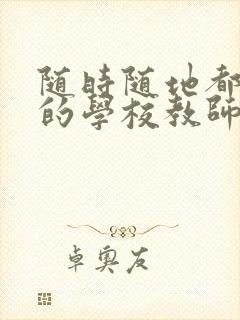 随時随地都
的學校教師
卓奧友